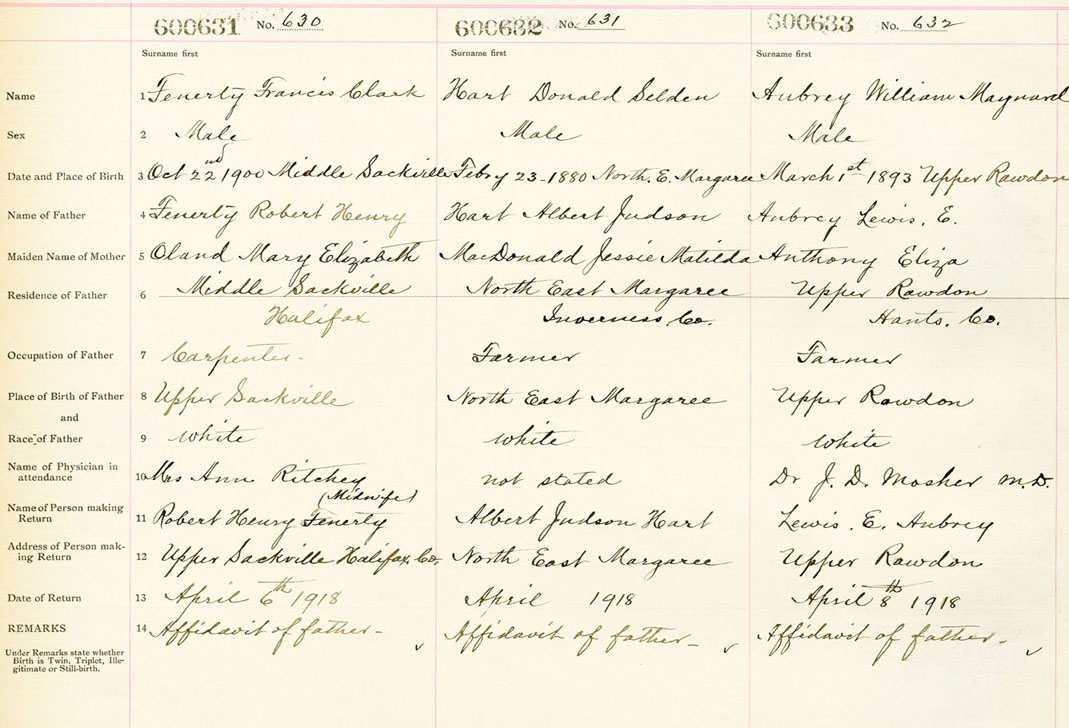 600631 No. 630 600632 No. 631 600633 No. 632
Surname first Surname first Surname first
Name 1 Fenerty Francis Clark Hart Donald Selden Aubrey William Maynard
Sex 2 Male Male Male
Date and Place of Birth 3 Oct 22nd 1900 Middle Sackville Febry 23-1880 North. E. Margaree March 1st 1893 Upper Rawdon
Name of Father 4 Fenerty Robert Henry Hart Albert Judson Aubrey Lewis. E.
Maiden Name of Mother 5 Oland Mary Elizabeth MacDonald Jessie Matilda Anthony Eliza
Residence of Father 6 Middle Sackville North East Margaree Upper Rawdon
Halifax Inverness. Co. Hants. Co.
Occupation of Father 7 Carpenter- Farmer Farmer
Place of Birth of Father 8 Upper Sackville North East Margaree Upper Rawdon
and
Race of Father 9 white white white
Name of Physician in
attendance 10 Mrs Ann Ritchey not stated Dr J. D. Mosher M.D.
(Midwife)
Name of Person making
Return 11 Robert Henry Fenerty Albert Judson Hart Lewis. E. Aubrey
Address of Person mak-
ing Return 12 Upper Sackville Halifax Co. North East Margaree Upper Rawdon
Date of Return 13 April 6th 1918 April 1918 April 8th 1918
REMARKS 14 Affidavit of father- Affidavit of father- Affidavit of father-
Under Remarks state whether
Birth is Twin, Triplet, Ille-
gitimate or Still-birth.